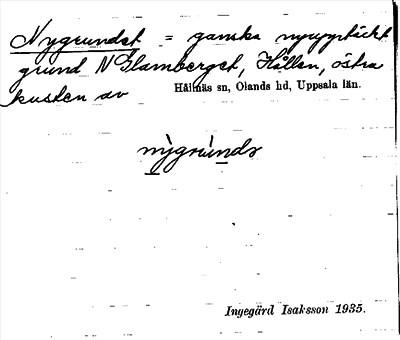 Nygrundet = ganska nyupptäckt
grund N Glamberget, Hållen, östra
kusten av Hållnäs sn, Olands hd, Uppsala län.
nỳgrúnds
Ingegärd Isaksson 1935.